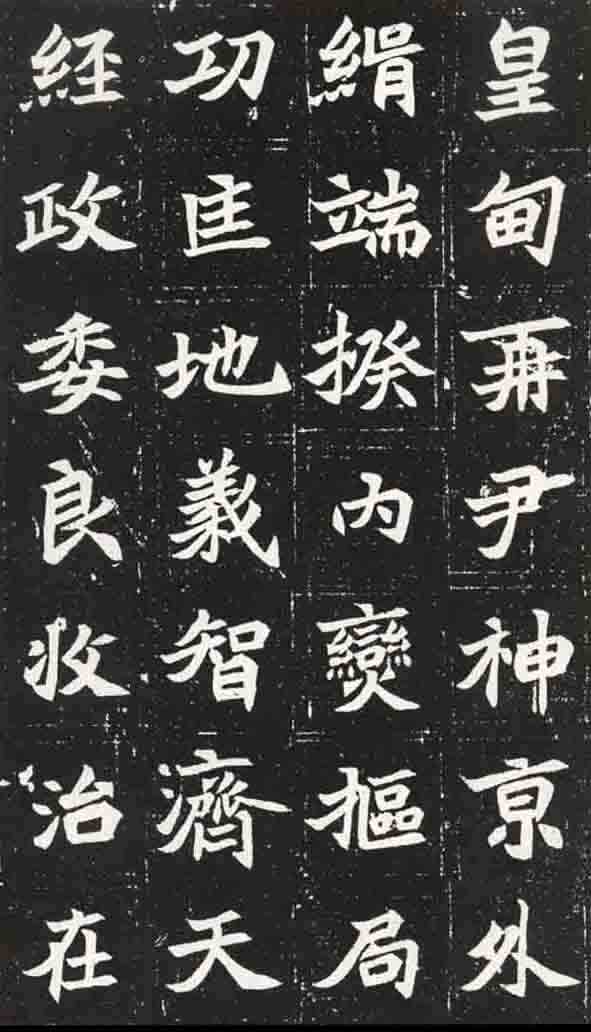 皇甸再尹神京外
緝端揆內爕樞局
功匡地義智濟天
經政委良收治在